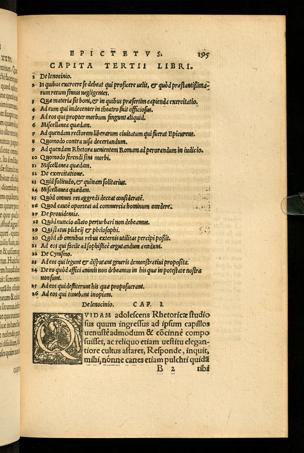 EPICTETVS. 195
CAPITA TERTII LIBRI.
1 De lenocinio.
2 In quibus exercere se debeat qui proficere uelit, & quòd præstantissima-
rum rerum simus negligentes.
3 Quæ materia sit boni, & in quibus præsertim capienda exercitatio.
4 Ad eum qui indecenter in theatro fuit officiosus.
5 Ad eos qui propter morbum fingunt aliquid.
6 Miscellanea quædam.
7 Ad quendam rectorem liberarum ciuitatum qui fuerat Epicureus.
8 Quomodo contra uisa decertandum.
9 Ad quendam Rhetora uenientem Romam ad perorandum in iudicio.
10 Quomodo ferendi sint morbi.
11 Miscellanea quædam.
12 De exercitatione.
13 Quid solitudo, & quinam solitarius.
14 Miscellanea quædam.
15 Quòd omnis res aggredi deceat consideratè.
16 Quòd cautè oporteat ad commercia hominum accedere.
17 De prouidentia.
18 Quòd nuncio aliquo perturbari non debeamus.
19 Quis status plebeij & philosophi.
20 Quòd ab omnibus rebus externis utilitas percipi possit.
21 Ad eos qui facilè ad sophisticè arguendum eunt.
22 De Cynismo.
23 Ad eos qui legunt & disputant generis demonstratiui proposita.
24 De eo quòd affici animis non debeamus in his quæ in potestate nostra
non sunt.
25 Ad eos qui desciscunt his quæ proposuerant.
26 Ad eos qui timebant inopiam.
De lenocinio. CAP. I.
QVIDAM adolescens Rhetoricæ studio
sus quum ingressus ad ipsum capillos
uenustè admodum & cōcinnè compo
suisset, ac reliquo etiam uestitu elegan-
tiore cultus astaret, Responde, inquit,
mihi, nónne canes etiam pulchri quidā
B 2 tibi